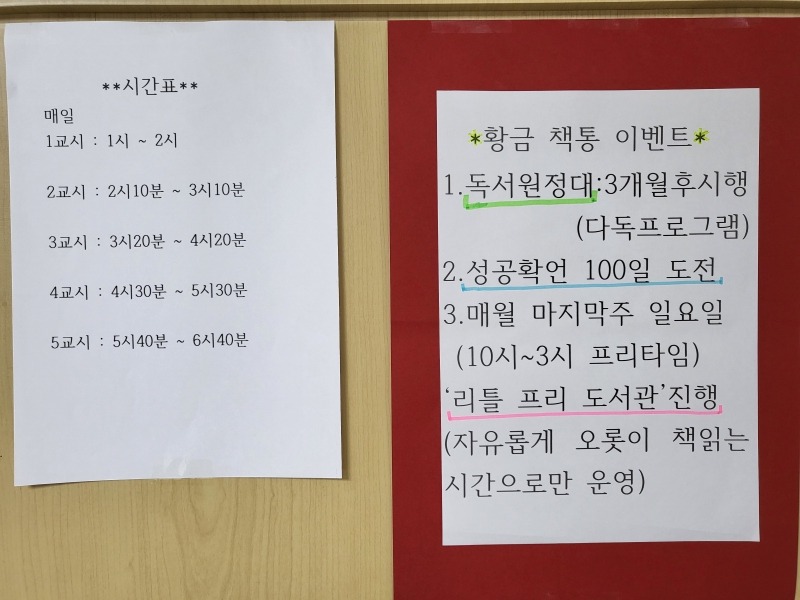 **시간표**
매일
1교시 : 1시 ~ 2시
2교시 : 2시10분 ~ 3시10분
3교시 : 3시20분 ~ 4시20분
4교시 : 4시30분 ~ 5시30분
5교시 : 5시40분 ~ 6시40분
*황금 책통 이벤트*
1.독서원정대:3개월후시행
(다독프로그램)
2.성공확언 100일 도전
3.매월 마지막주 일요일
(10시~3시 프리타임)
‘리틀 프리 도서관’진행
(자유롭게 오롯이 책읽는
시간으로만 운영)